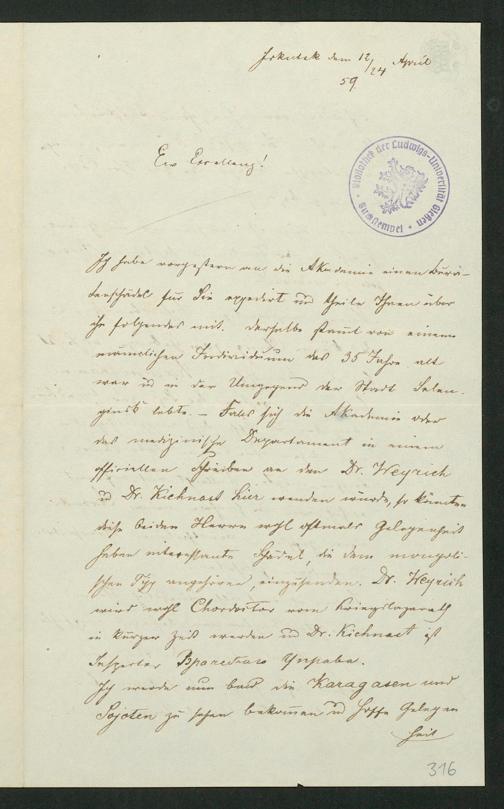 Irkutsk den 12/24 April
59.
Ew Excellenz!
Bibliothek der Ludwigs-Universität Gießen
Ich habe vorgestern an die Akademie einen Burä-
tenschädel für Sie expedirt und theile Ihnen über
ihn folgendes mit. Derselbe stamt von einem
männlichen Individuum das 35 Jahre alt
war u in der Umgegend der Stadt Selen-
ginsk lebte. – Falls sich die Akademie oder
das medizinische Departament in einem
officiellen Schreiben an den Dr. Weyrich
u Dr. Kichnast hier wenden würde, so könnten
diese beiden Herren wohl oftmals Gelegenheit
haben interessante Schädel, die dem mongoli-
schen Typ angehören, einzusenden. Dr. Weyrich
wird wohl vom
in kurzer Zeit werden u Dr. Kichnast ist
Inspector Управа.
Ich werde nun bald die Karagasen und
Sojoten zu sehen bekommen u hoffe Gelegen
heit
316